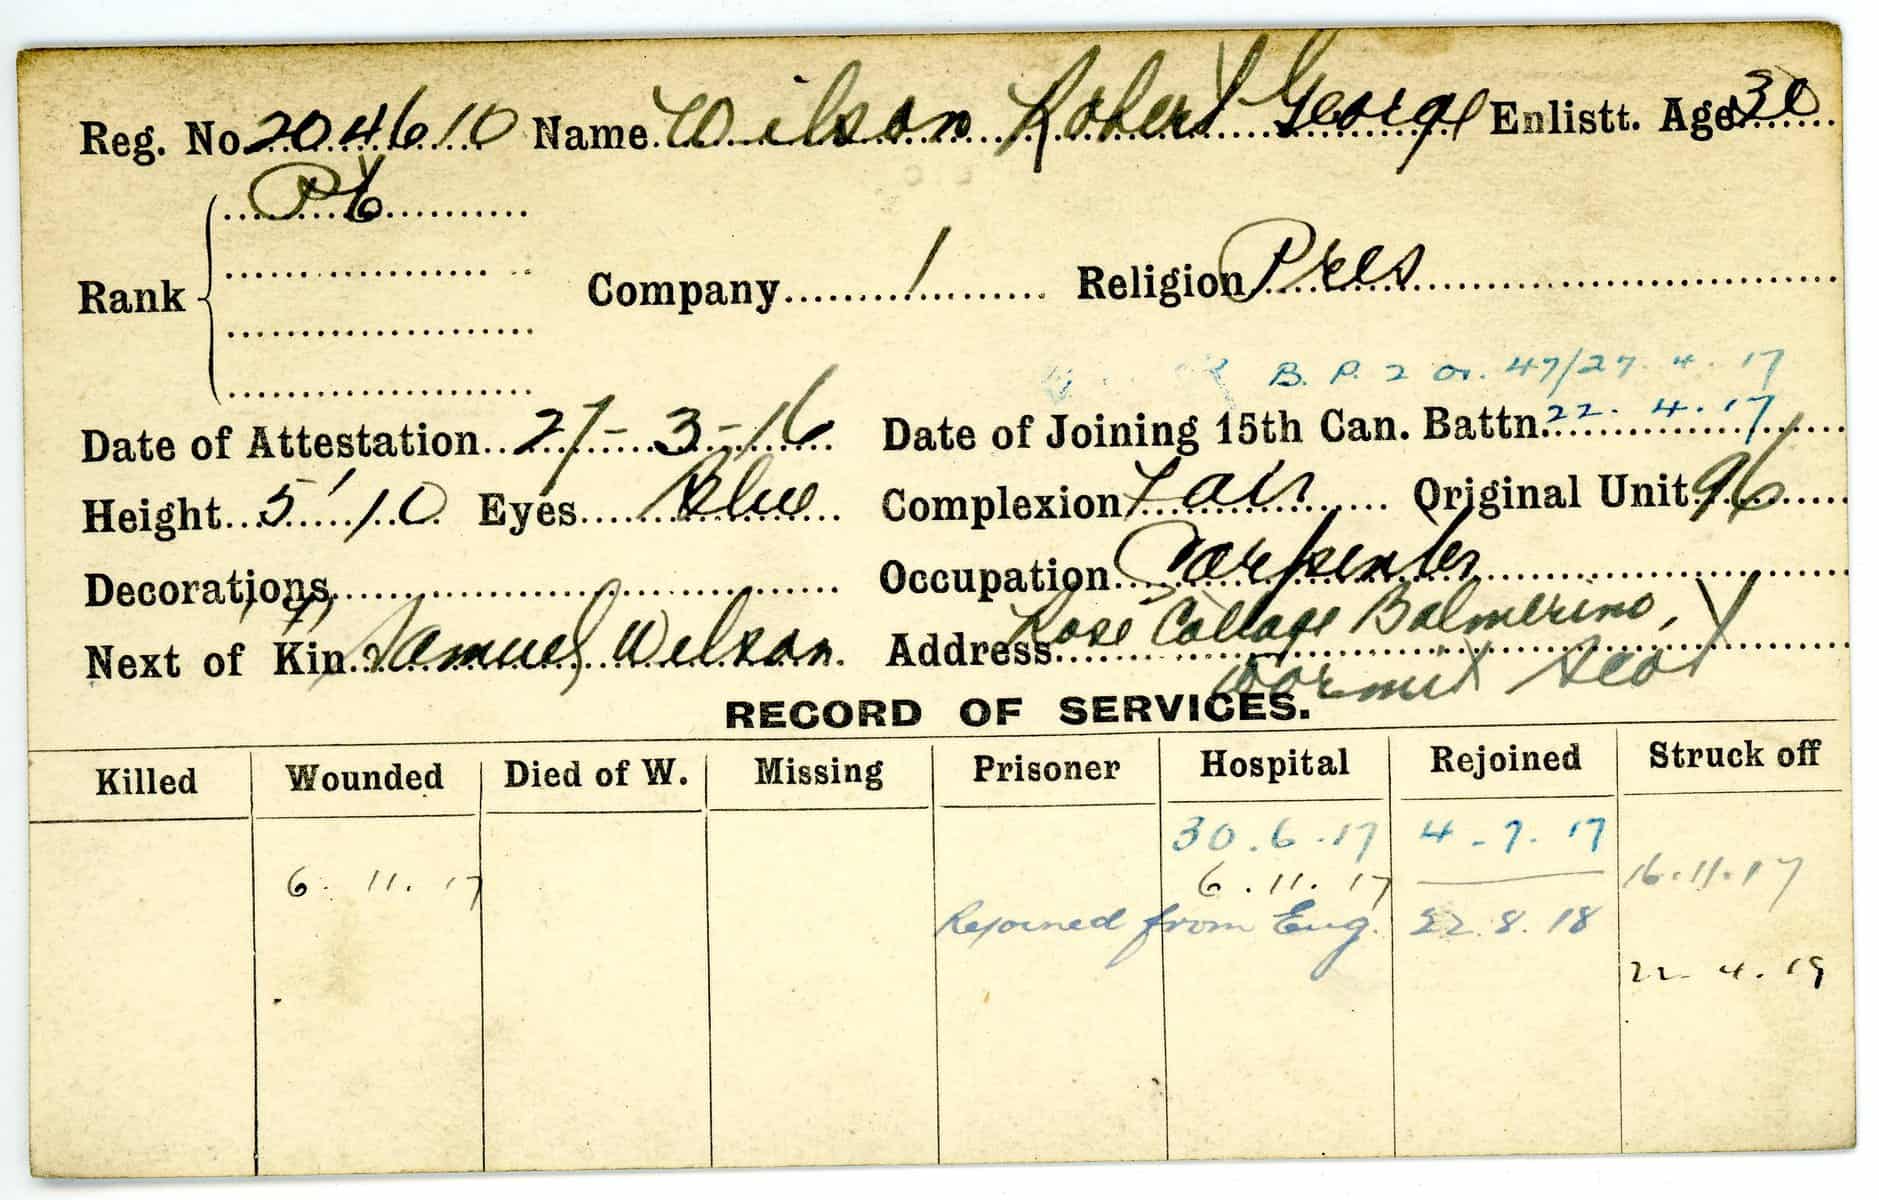 Reg. No. 204610 Name. Wilson Robert George Enlistt. Age 30
Pte
Rank Company 1 Religion Pres
B. P. 2 Or. 47/27. 4. 17
Date of Attestation 27-3-16 Date of Joining 15th Can. Battn. 22. 4. 17
Height 5' 10 Eyes Blue Complexion Fair Original Unit 96
Decorations Occupation Carpenter
Next of Kin (F) Samuel Wilson. Address Rose Cottage Balmerino,
Wormit Scot
RECORD OF SERVICES.
Killed Wounded Died of W. Missing Prisoner Hospital Rejoined Struck off
30.6.17 4-7.17
6. 11. 17 6.11.17 16.11.17
Rejoined from Eng. 22.8.18
22. 4. 19